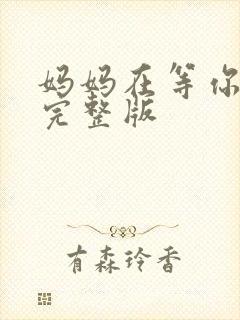 妈妈在等你
完整版
有森玲香